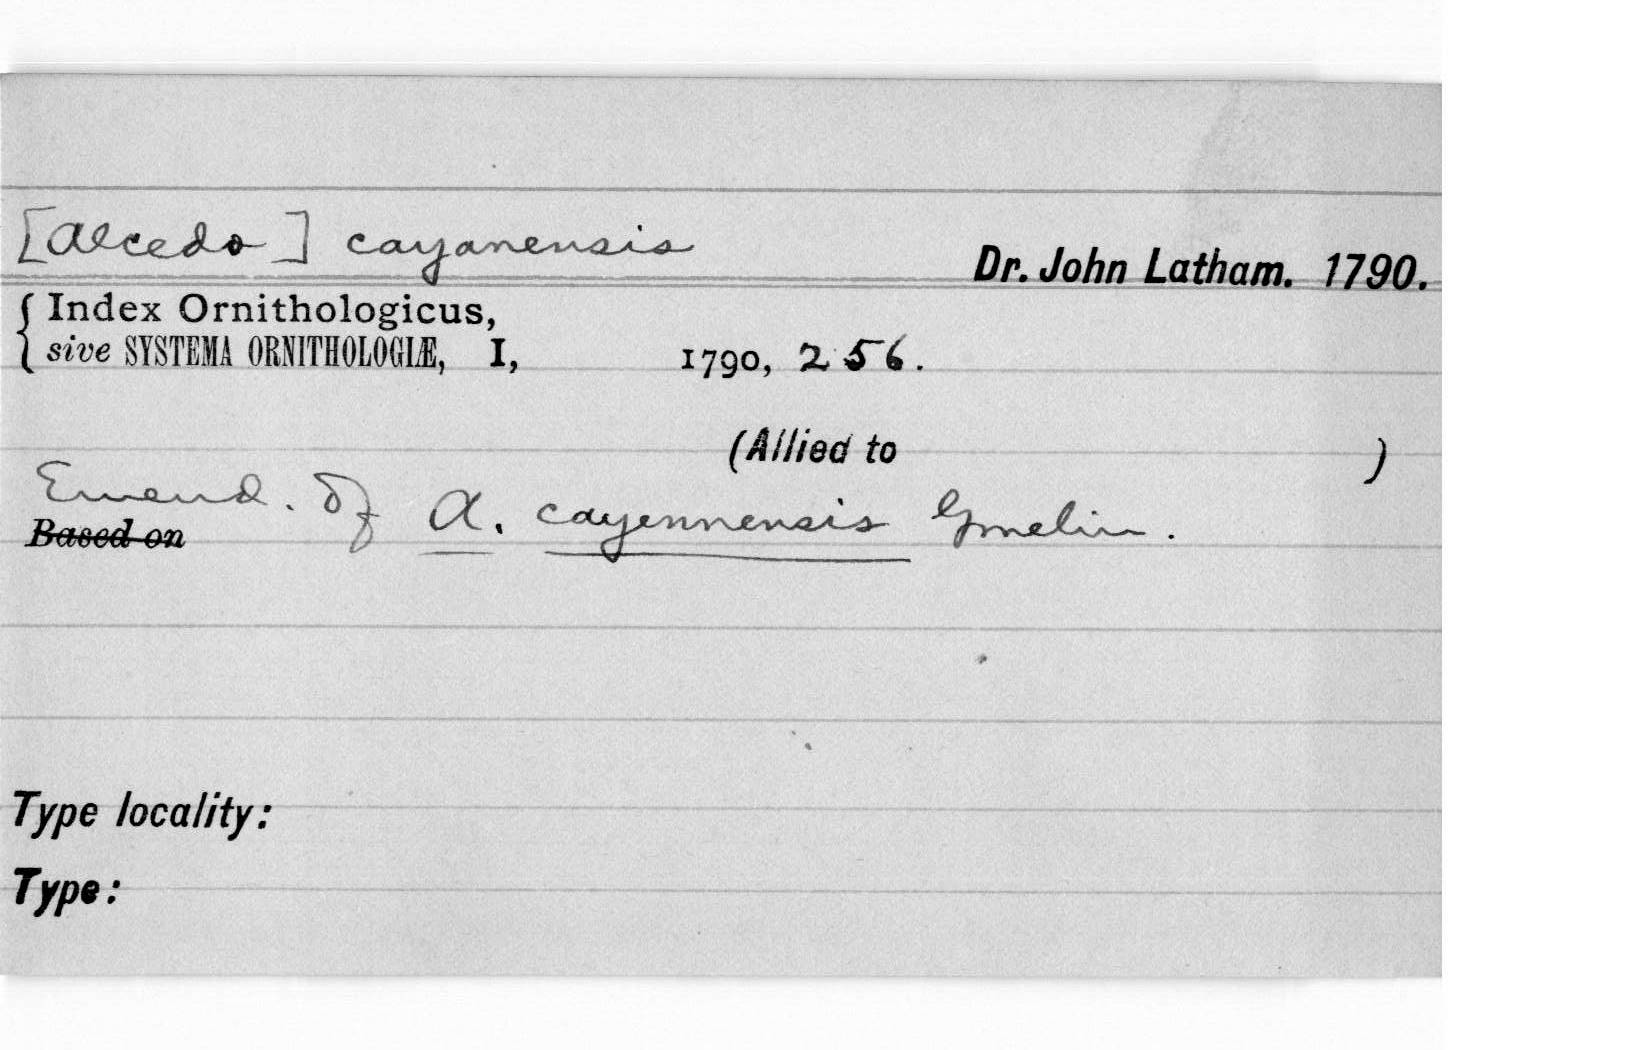 [Alcedo] cayanensis
Dr. John Latham. 1790.
Index Ornithologicus,
sive SYSTEMA ORNITHOLOGIÆ, I, 1790, 256.
(Allied to )
Emend. of A. cayennensis Gmelin.
Based on
Type locality:
Type: